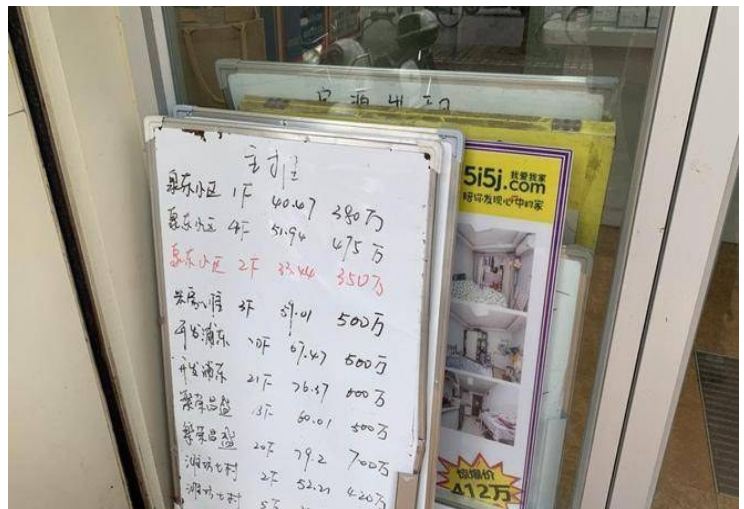 房源出租
主推
泉东小区 1F 40.47 380万
泉东小区 4F 51.94 475万
泉东小区 2F 33.44 350万
3F 59.01 500万
开发浦东 67.47 500万
开发浦东 21F 76.37 600万
繁荣昌盛 13F 60.01 500万
繁荣昌盛 20F 79.2 700万
潍坊七村 2F 52.21 420万
潍坊七村 5F
5i5j.com 我爱我家
陪你发现心中的家
惊爆价
412万